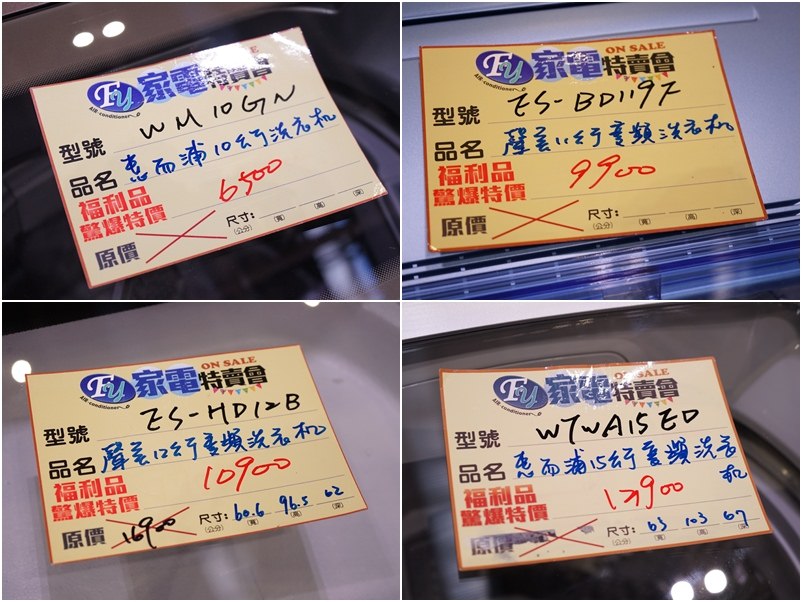 ON SALE
FY 家電特賣會
Air conditioner
型號 WM10GN
品名 惠而浦10公斤洗衣机
福利品
驚爆特價 6500
原價 尺寸:
(公分) (寬) (高) (深)
ON SALE
FY 家電特賣會
Air conditioner
型號 ES-BD119F
品名 聲宝11公斤变頻洗衣机
福利品
驚爆特價 9900
原價 尺寸:
(公分) (寬) (高) (深)
ON SALE
FY 家電特賣會
Air conditioner
型號 ES-HD12B
品名 聲宝12公斤变頻洗衣机
福利品
驚爆特價 10900
原價 16900 尺寸: 60.6 96.5 62
(公分) (寬) (高) (深)
ON SALE
FY 家電特賣會
Air conditioner
型號 WTWA15ED
品名 惠而浦15公斤变頻洗衣机
福利品
驚爆特價 17900
原價 尺寸: 63 103 67
(公分) (寬) (高) (深)